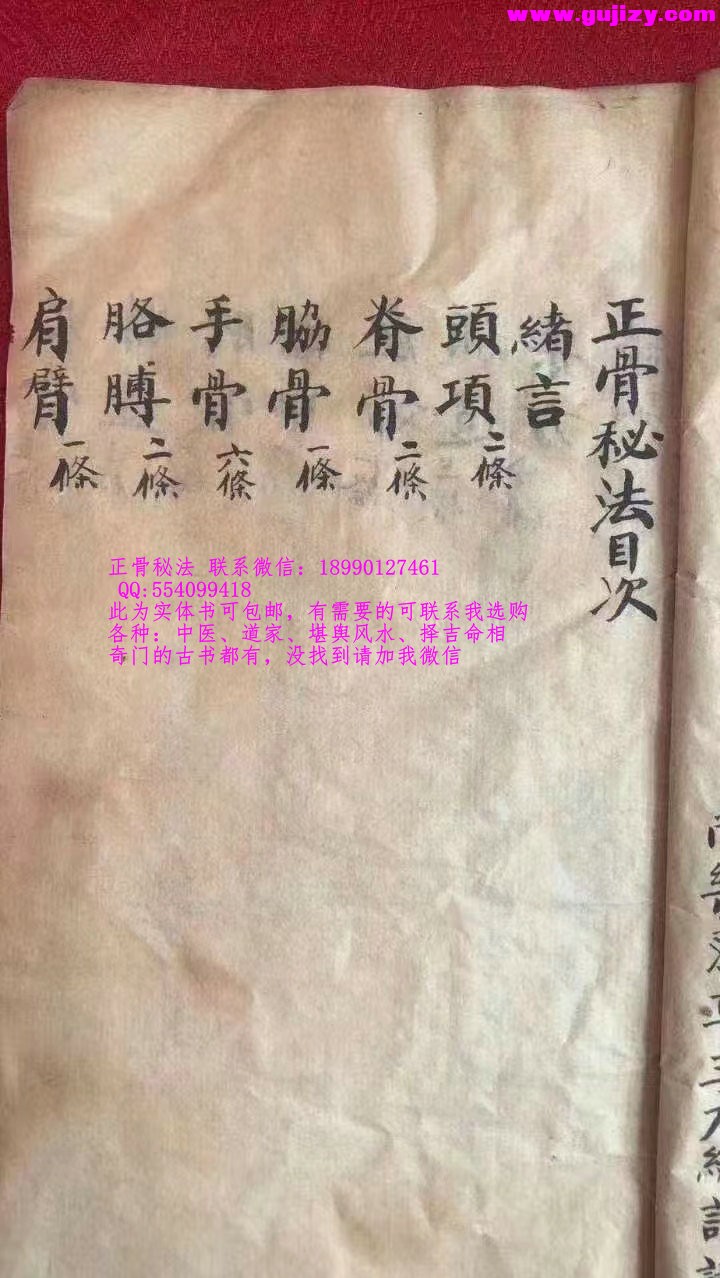 www.gujizy.com
正骨秘法目次
緒言
頭項二條
脊骨二條
脇骨一條
手骨六條
胳膊二條
肩臂一條
正骨秘法 联系微信：18990127461
QQ:554099418
此为实体书可包邮，有需要的可联系我选购
各种：中医、道家、堪舆风水、择吉命相
奇门的古书都有，没找到请加我微信